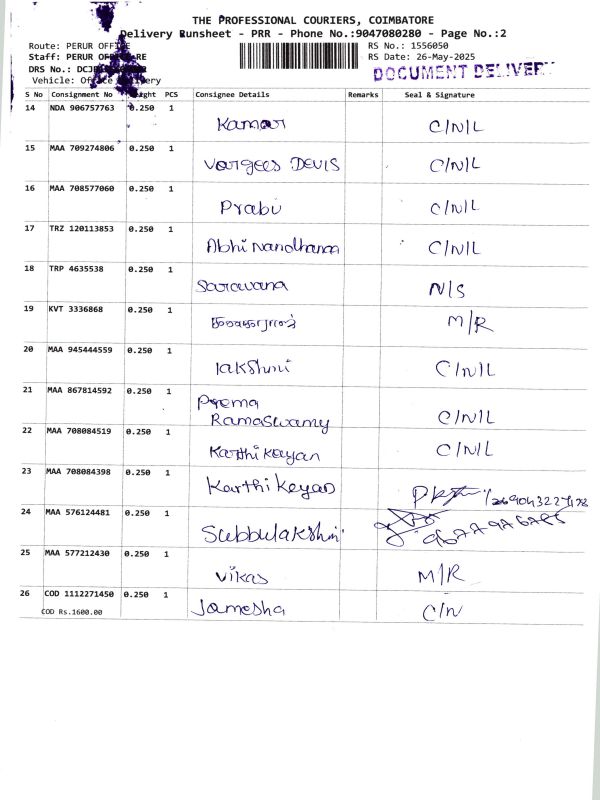 THE PROFESSIONAL COURIERS, COIMBATORE
Delivery Runsheet - PRR - Phone No.:9047080280 - Page No.:2
Route: PERUR OFFICE RS No.: 1556050
Staff: PERUR RS Date: 26-May-2025
DRS No.: DOCUMENT DELIVERY
Vehicle: Office Delivery
S No Consignment No Weight PCS Consignee Details Remarks Seal & Signature
14 NDA 906757763 0.250 1
Kamar C/N/L
15 MAA 709274806 0.250 1
Vargees Devis C/N/L
16 MAA 708577060 0.250 1
Prabu C/N/L
17 TRZ 120113853 0.250 1
Abhi Nandhana C/N/L
18 TRP 4635538 0.250 1
Sarawana N/S
19 KVT 3336868 0.250 1
M/R
20 MAA 945444559 0.250 1
lakshmi C/N/L
21 MAA 867814592 0.250 1
Prema
Ramaswamy C/N/L
22 MAA 708084519 0.250 1
Karthikeyan C/N/L
23 MAA 708084398 0.250 1
Karthikeyan
24 MAA 576124481 0.250 1
Subbulakshmi
25 MAA 577212430 0.250 1
Vikas M/R
26 COD 1112271450 0.250 1
Jamesha C/N
COD Rs.1600.00